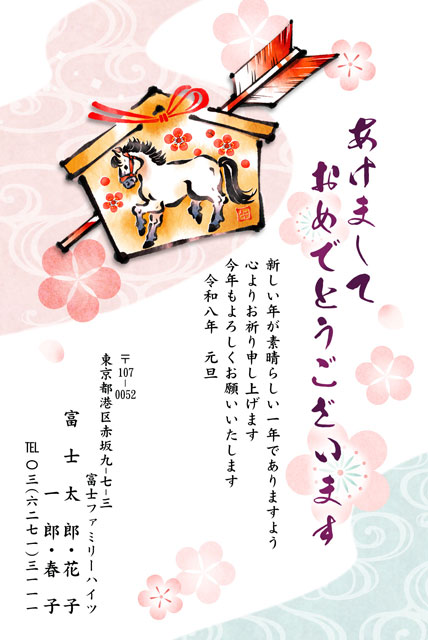 あけまして
おめでとうございます
新しい年が素晴らしい一年でありますよう
心よりお祈り申し上げます
今年もよろしくお願いいたします
令和八年　元旦
〒107-0052
東京都港区赤坂九-七-三
富士ファミリーハイツ
富士太郎・花子
一郎・春子
TEL〇三(六二七一)三一一一